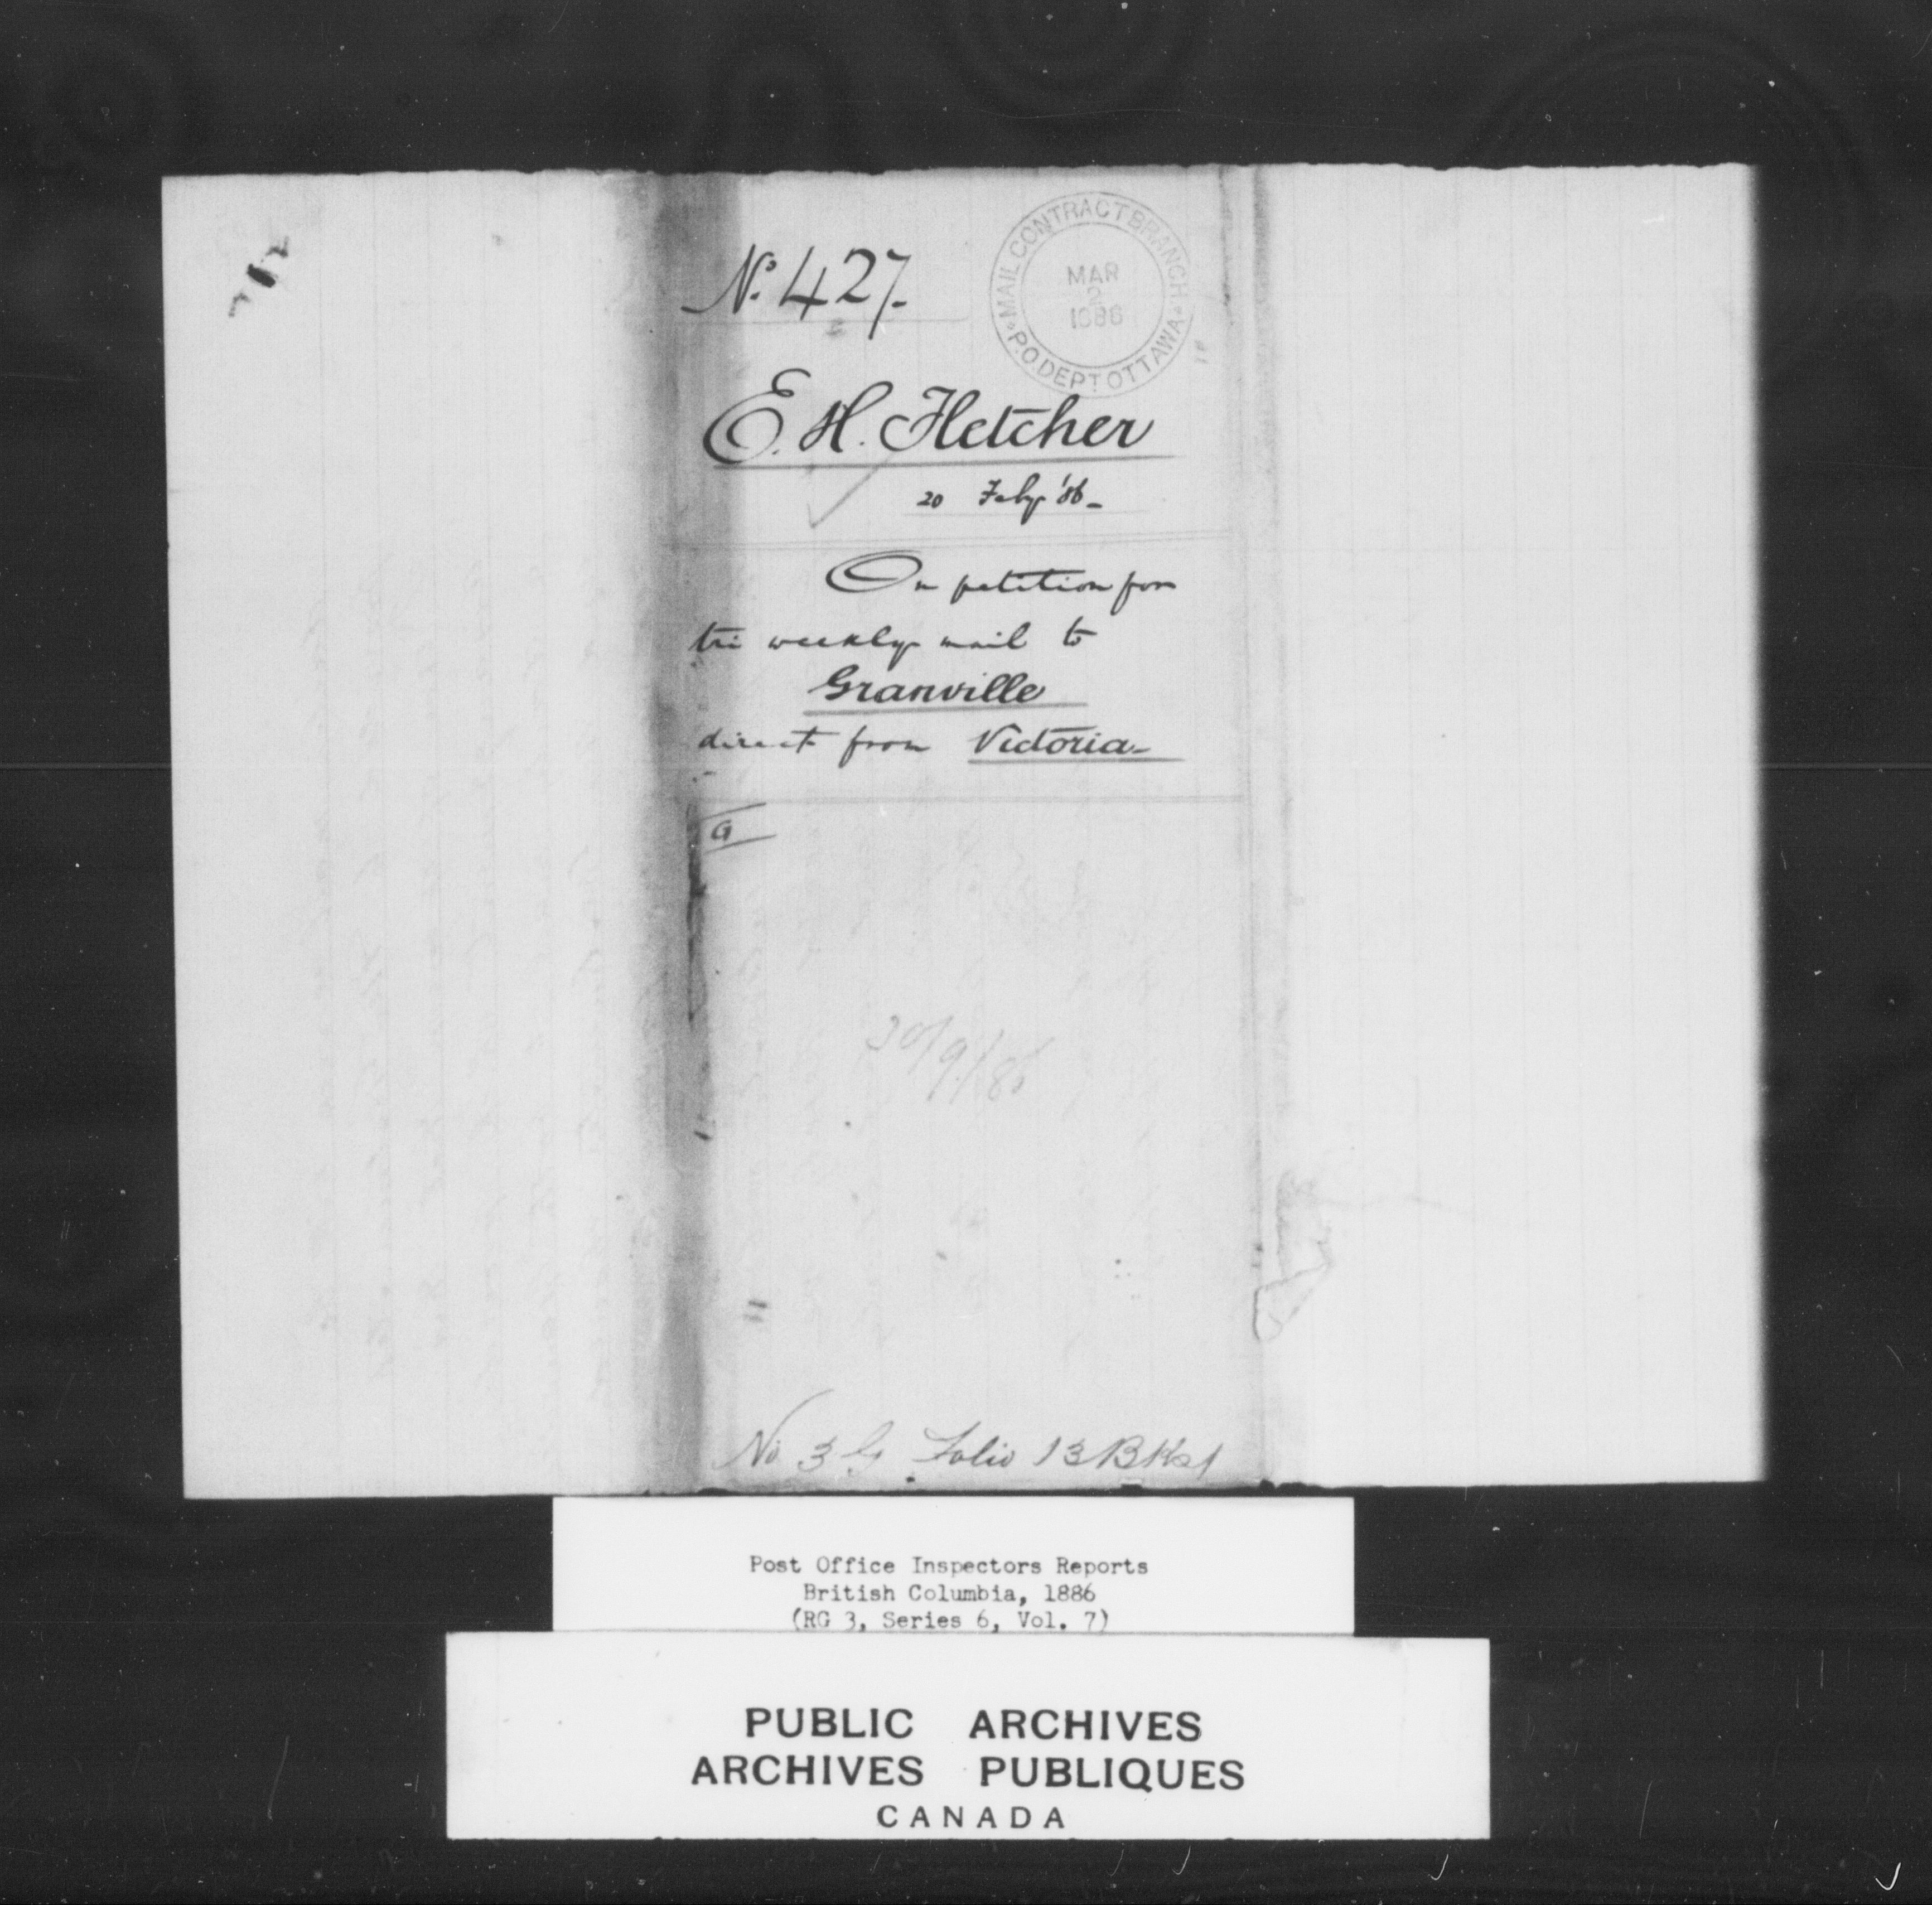 No. 427.
MAIL CONTRACT BRANCH
MAR
2
1886
P.O. DEPT OTTAWA
E. H. Fletcher
20 Feby '86-
On petition for
tri weekly mail to
Granville
direct from Victoria-
G
30/9/86
No 3 G Folio 13 BK
Post Office Inspectors Reports
British Columbia, 1886
(RG 3, Series 6, Vol. 7)
PUBLIC ARCHIVES
ARCHIVES PUBLIQUES
CANADA